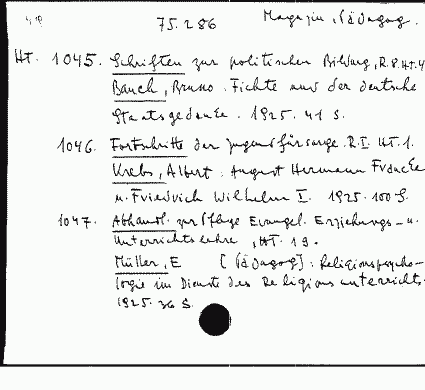 75.286 Magazin, Pädagog.
HT. 1045. Schriften zur politischen Bildung, R. 8. HT. 4
Bauch, Bruno. Fichte und der deutsche
Staatsgedanke. 1925. 41 S.
1046. Fortschritte der Jugendfürsorge. R. I. HT. 1.
Krebs, Albert: August Hermann Francke
u. Friedrich Wilhelm I. 1925. 100 S.
1047. Abhandl. zur Pflege Evangel. Erziehungs- u.
Unterrichtslehre, HT. 19.
Müller, E [Pädagog]: Religionspsycho-
logie im Dienste des Religionsunterrichts.
1925. 36 S.